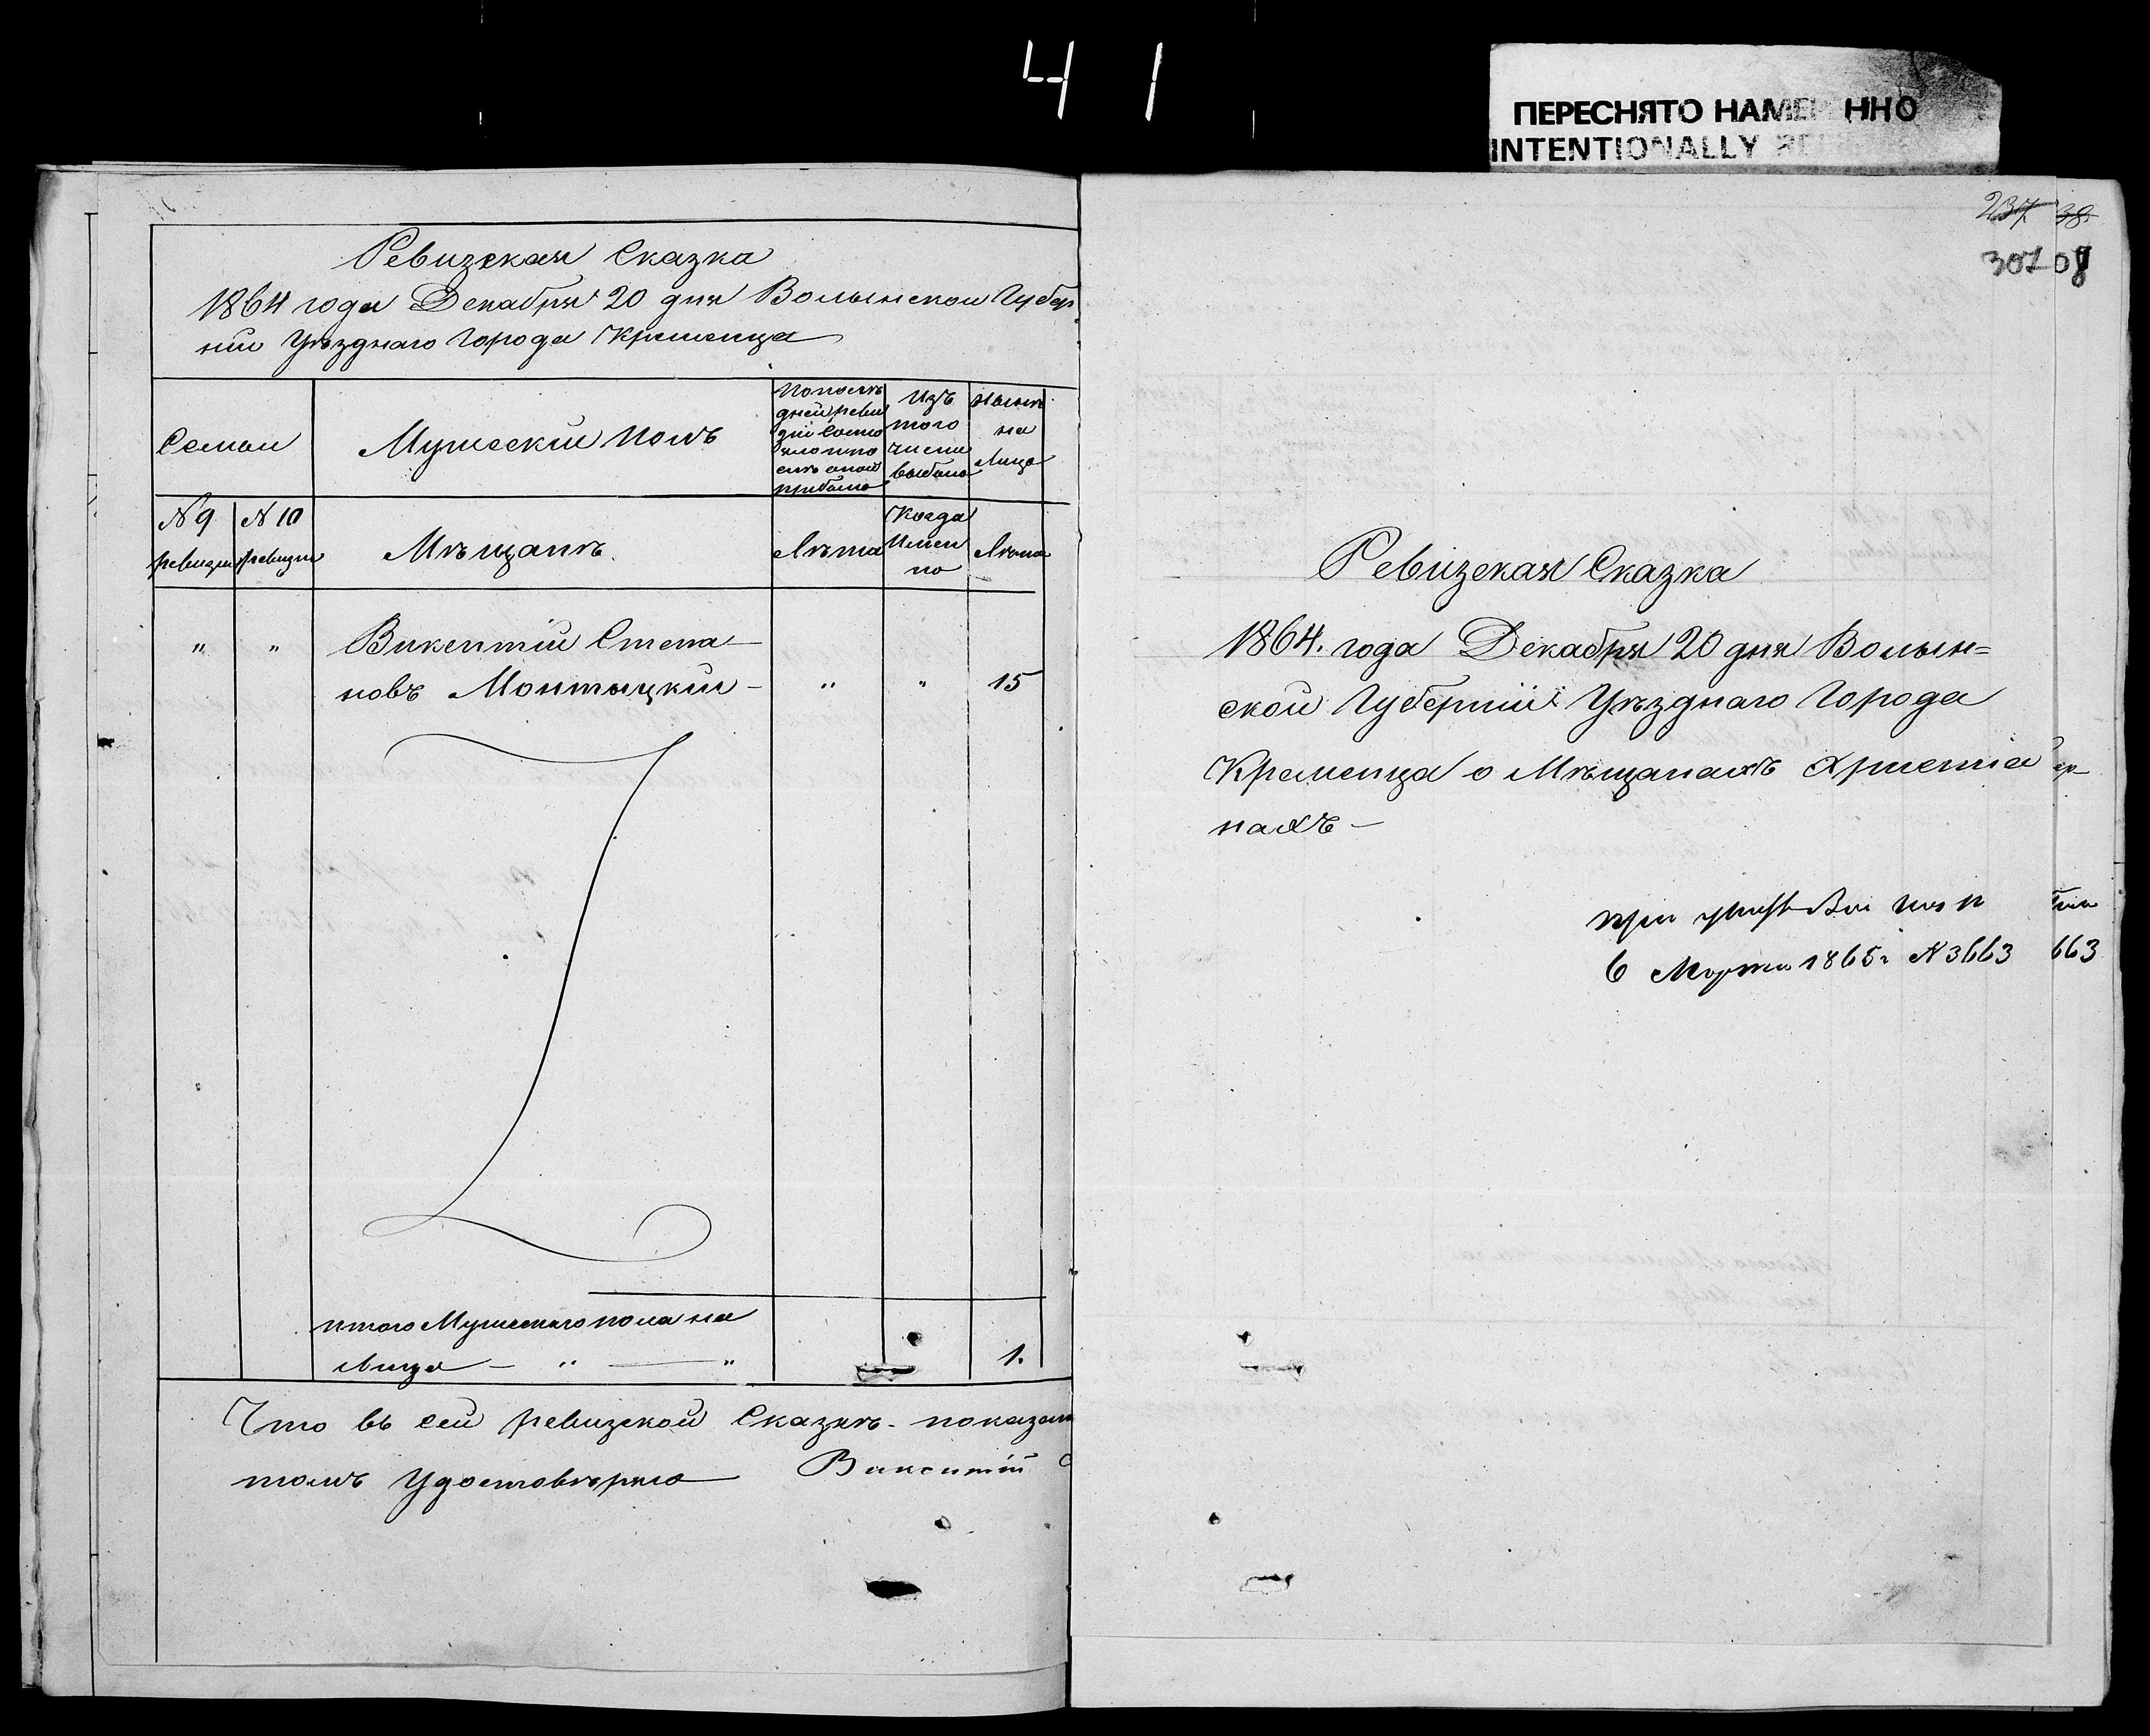 41
ПЕРЕСНЯТО НАМЕР ННО
INTENTIONALLY
Ревизская Сказка
1864 года Декабря 20 дня Волынской Губер
нии Уѣзднаго Города Кременца
Семьи
Мужеский Полъ
По послѣ
дней реви
зіи состо
яло и по
слѣ оной
прибыло
Изъ
того
числа
выбыло
Нынѣ
на
Лицо
N 9
ревизіи
N 10
ревизіи
Мѣщанъ
Лѣта
Когда
Имен
но
Лѣта
" " Викентій Степа-
новъ Монтыцкій - " " 15
итого Мужескаго пола на
лицо - " — " 1.
Что въ сей ревизской Сказкѣ - показан
томъ Удостовѣряю Викентій С
237 38
307 08
Ревизская Сказка
1864. года Декабря 20 дня Волын=
ской Губерніи Уѣзднаго Города
Кременца о Мѣщанахъ Христіа
нахъ -
при
6 Марта 1865 г N 3663 663